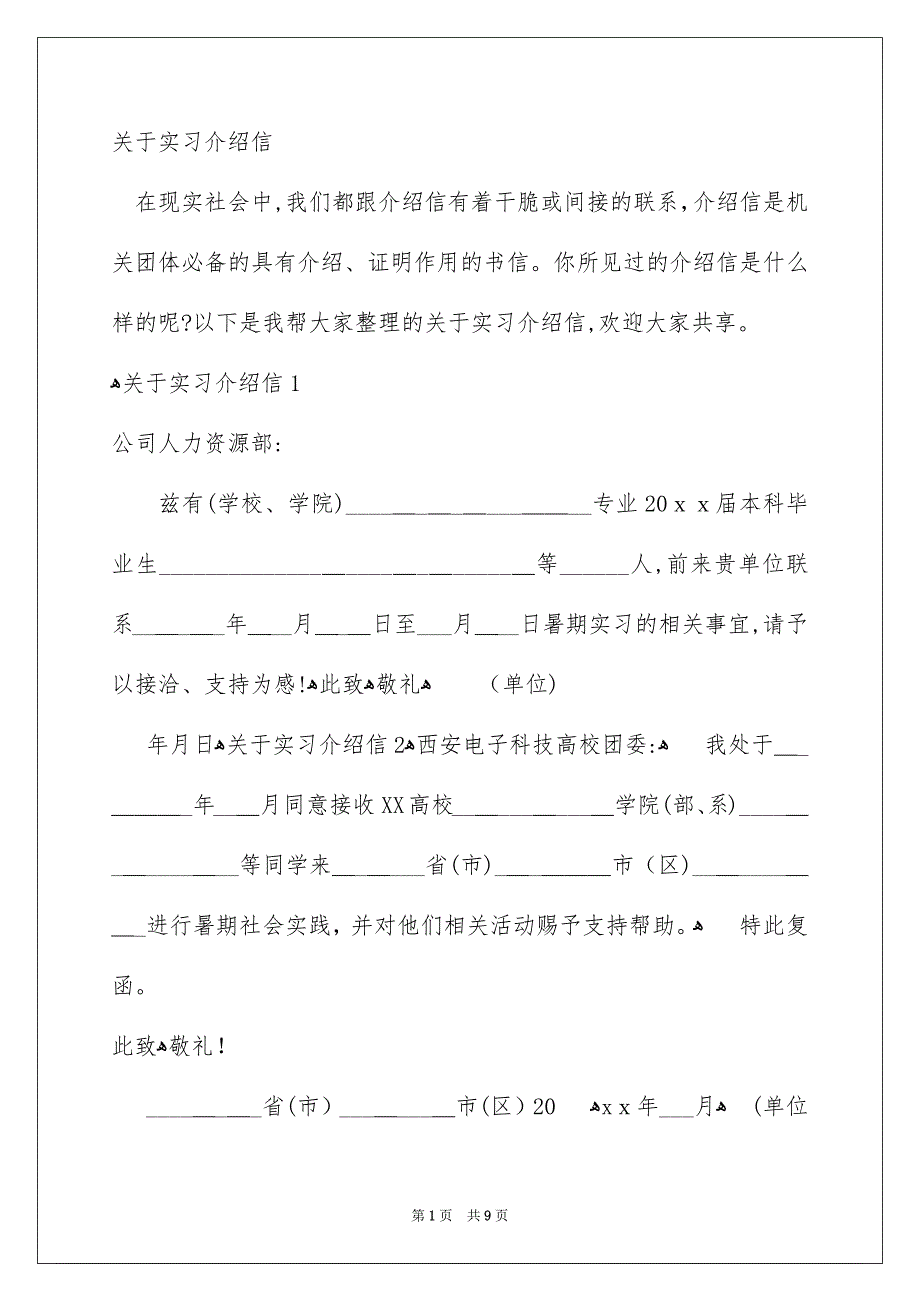 关于实习介绍信
在现实社会中,我们都跟介绍信有着干脆或间接的联系,介绍信是机
关团体必备的具有介绍、证明作用的书信。你所见过的介绍信是什么
样的呢?以下是我帮大家整理的关于实习介绍信,欢迎大家共享。
ﻫ关于实习介绍信1
公司人力资源部:
兹有(学校、学院)_____________________专业20ｘｘ届本科毕
业生________________________________等______人,前来贵单位联
系________年____月_____日至___月____日暑期实习的相关事宜,请予
以接洽、支持为感!ﻫ此致ﻫ敬礼ﻫ （单位)
年月日ﻫ关于实习介绍信2ﻫ西安电子科技高校团委:ﻫ 我处于___
_______年____月同意接收XX高校______________学院(部、系)______
___________等同学来________省(市)__________市（区)__________
___进行暑期社会实践，并对他们相关活动赐予支持帮助。ﻫ 特此复
函。
此致ﻫ敬礼！
__________省(市）__________市(区）20 ﻫxｘ年___月ﻫ (单位
第1页 共9页